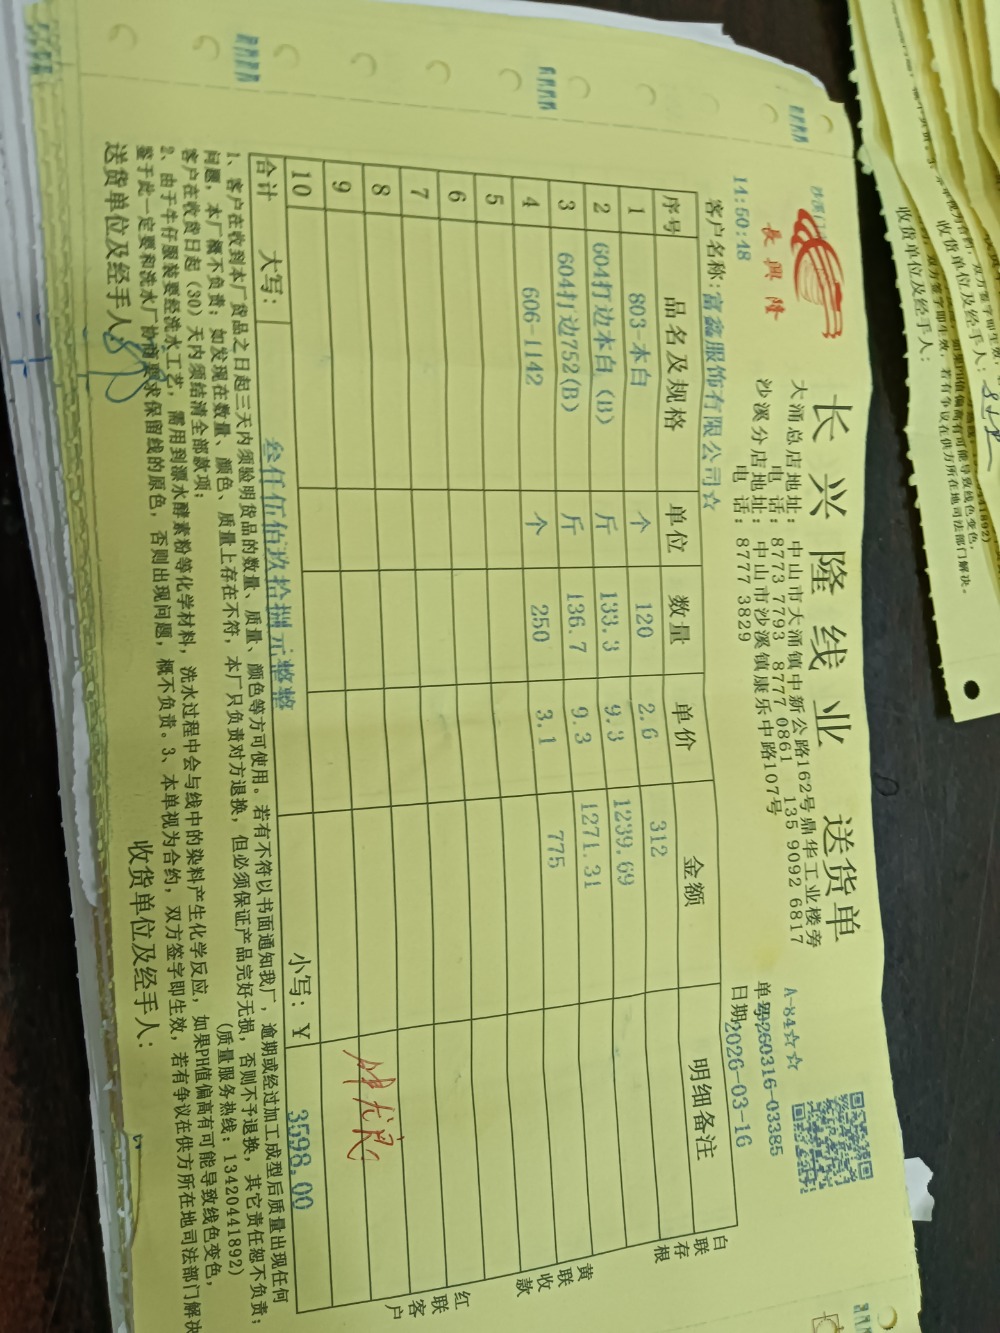 長興隆
长兴隆线业 送货单
大涌总店地址: 中山市大涌镇中新公路162号鼎华工业楼旁
电 话: 8773 7793 8777 0861 135 9092 6817
沙溪分店地址: 中山市沙溪镇康乐中路107号
电 话: 8777 3829
A-84☆☆
单号: 260316-03385
日期: 2026-03-16
14:50:48
客户名称: 富鑫服饰有限公司☆
序号 品名及规格 单位 数量 单价 金额 明细备注
1 803-本白 个 120 2.6 312
2 604打边本白 (B) 斤 133.3 9.3 1239.69
3 604打边752(B) 斤 136.7 9.3 1271.31
4 606-1142 个 250 3.1 775
5
6
7
8
9
10
合计 大写: 叁仟伍佰玖拾捌元整整 小写: ¥ 3598.00
白联存根
黄联收款
红联客户
1、客户在收到本厂货品之日起三天内须验明货品的数量、质量、颜色等方可使用。若有不符以书面通知我厂，逾期或经过加工成型后质量出现任何
问题，本厂概不负责；如发现在数量、颜色、质量上存在不符，本厂只负责对方退换，但必须保证产品完好无损，否则不予退换，其它责任恕不负责；
客户在收货日起（30）天内须结清全部款项； (质量服务热线: 13420441892)
2、由于牛仔服装要经洗水工艺，需用到漂水酵素粉等化学材料，洗水过程中会与线中的染料产生化学反应，如果PH值偏高有可能导致线色变色，
鉴于此一定要和洗水厂协商要求保留线的原色，否则出现问题，概不负责。3、本单视为合约，双方签字即生效，若有争议在供方所在地司法部门解决
送货单位及经手人: 收货单位及经手人:
收货单位及经手人:
收货单位及经手人: